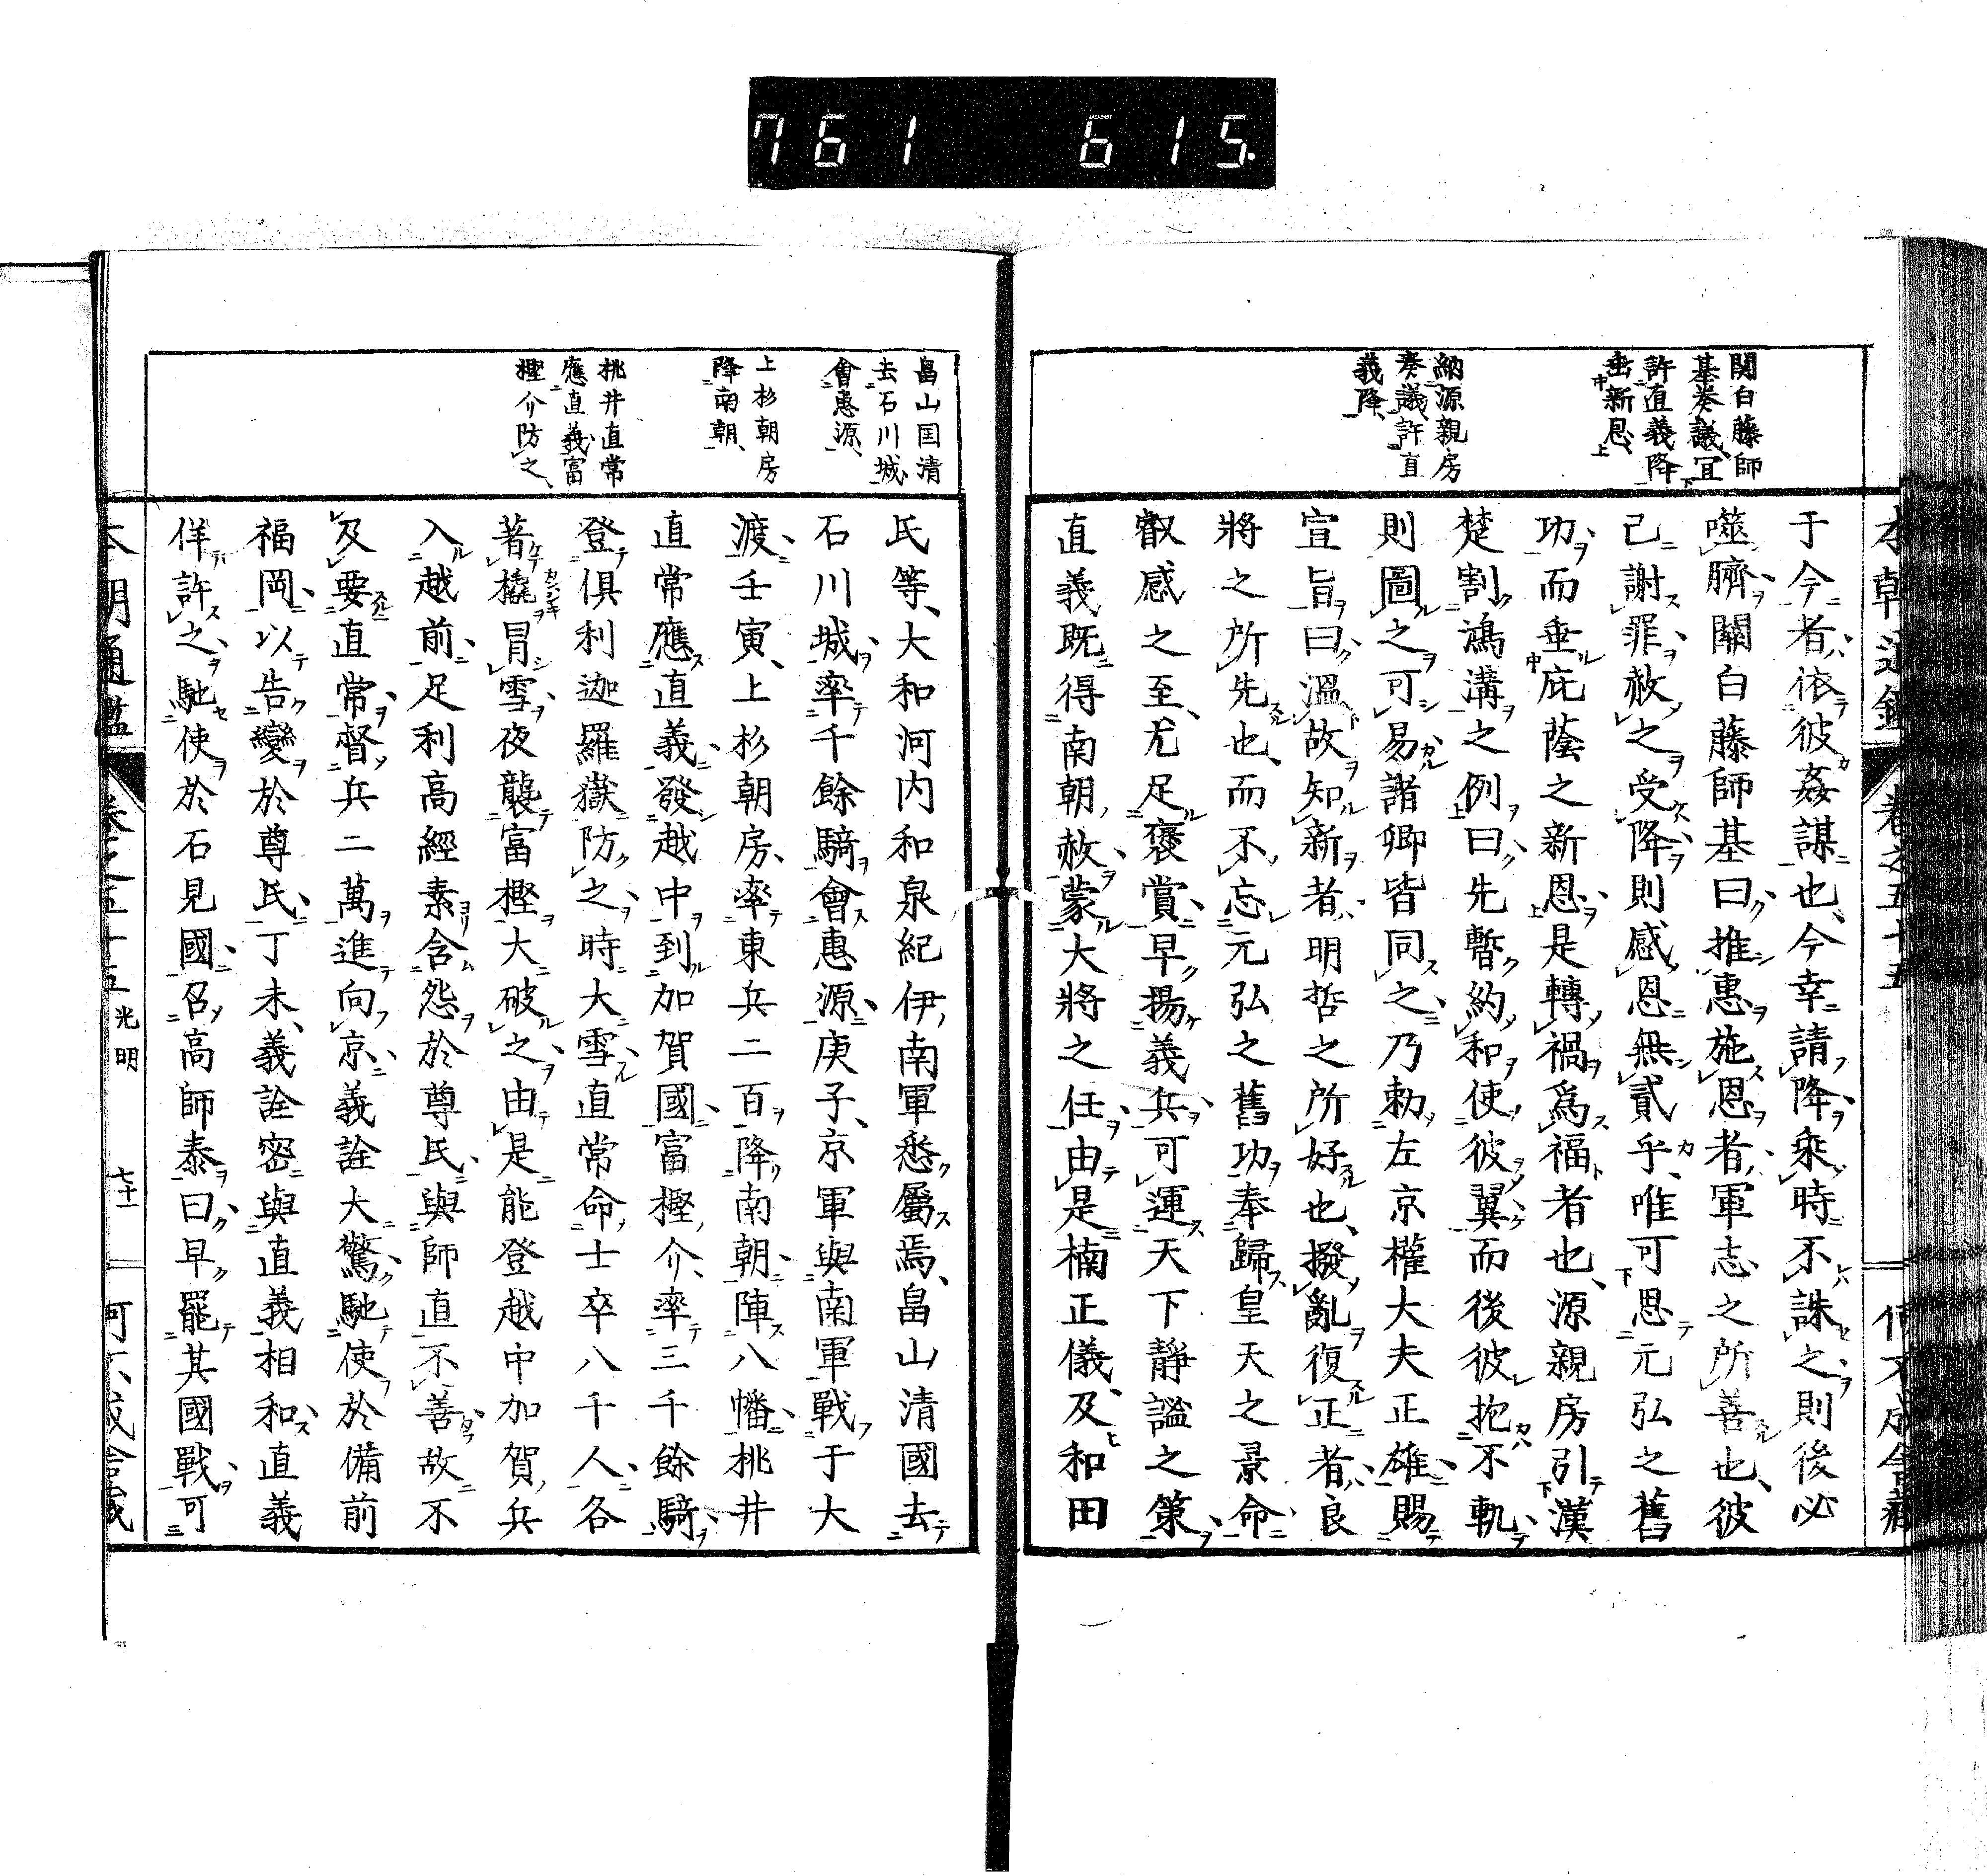 761 615.
本朝通鑑 卷之五十五
関白藤師
基奏議宜
許直義降
垂新恩
納源親房
奏議許直
義降
于今者依彼姦謀也今幸請降乘時不誅之則後必
噬臍關白藤師基曰推惠施恩者軍志之所善也彼
己謝罪赦之受降則感恩無貳乎唯可思元弘之舊
功而垂庇蔭之新恩是轉禍爲福者也源親房引漢
楚割鴻溝之例曰先暫約和使彼翼而後彼抱不軌
則圖之可易諸卿皆同之乃勅左京權大夫正雄賜
宣旨曰溫故知新者明哲之所好也撥亂復正者良
將之所先也而不忘元弘之舊功奉歸皇天之景命
叡感之至尤足褒賞早揚義兵可運天下靜謐之策
直義既得南朝赦蒙大將之任由是楠正儀及和田
畠山国清
去石川城
會惠源
上杉朝房
降南朝
桃井直常
應直義富
樫介防之
氏等大和河内和泉紀伊南軍悉屬焉畠山清國去
石川城率千餘騎會惠源庚子京軍與南軍戰于大
渡壬寅上杉朝房率東兵二百降南朝陣八幡桃井
直常應直義發越中到加賀國富樫介率三千餘騎
登倶利迦羅嶽防之時大雪直常命士卒八千人各
著橇冒雪夜襲富樫大破之由是能登越中加賀兵
入越前足利高經素含怨於尊氏與師直不善故不
及要直常督兵二萬進向京義詮大驚馳使於備前
福岡以告變於尊氏丁未義詮密與直義相和直義
佯許之馳使於石見國召高師泰曰早罷其國戰可
本朝通鑑 卷之五十五 光明 七十一